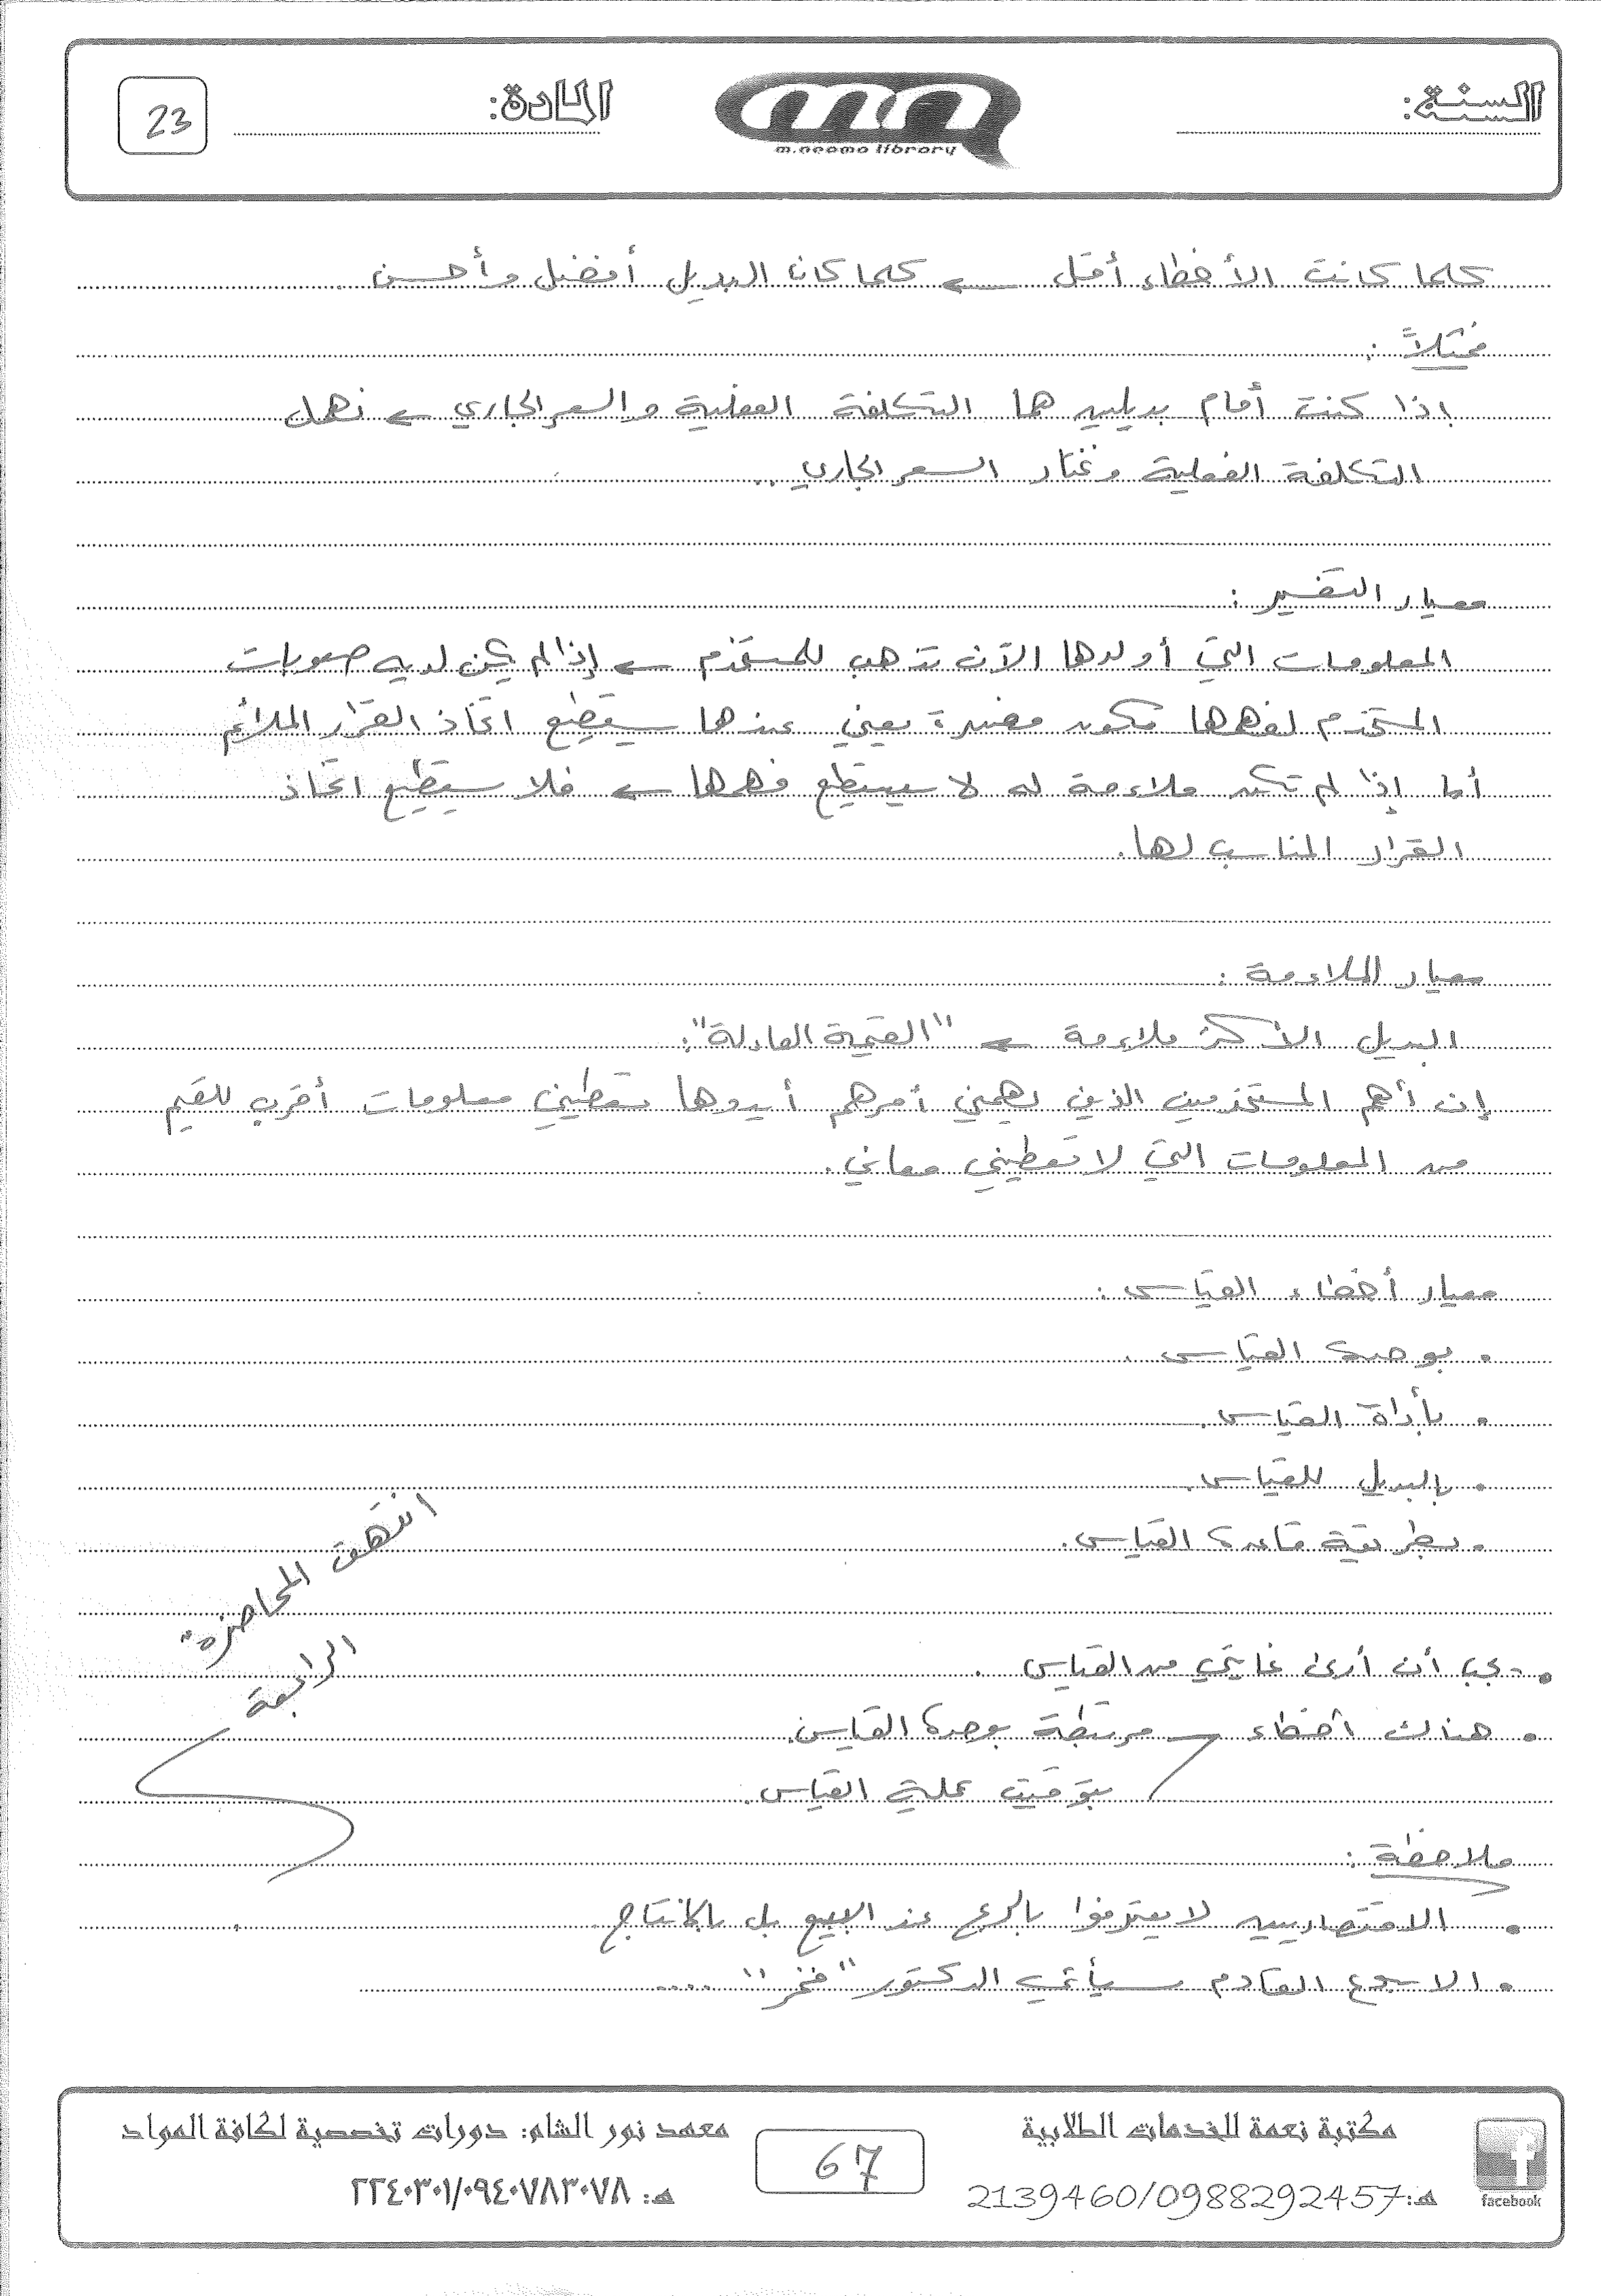 السنة:
المادة:
23
m.neama library
كلما كانت الأخطاء أقل ← كلما كان البديل أفضل وأحسن.
فمثلاً:
إذا كنت أمام بديلين هما التكلفة الفعلية والسعر الجاري ← نهمل
التكلفة الفعلية ونختار السعر الجاري..
معيار التفسير:
المعلومات التي أولدها الآن تذهب للمستخدم ← إذا لم يكن لديه صعوبات
المستخدم لفهمها تكون مفسرة يعني عندها سيستطيع اتخاذ القرار الملائم
أما إذا لم تكن ملاءمة له لا يستطيع فهمها ← فلا يستطيع اتخاذ
القرار المناسب لها.
معيار الملاءمة:
البديل الأكثر ملاءمة ← "القيمة العادلة":
إن أهم المستخدمين الذين يهمني أمرهم أيدوها تعطيني معلومات أقرب للقيم
من المعلومات التي لا تعطيني معاني.
معيار أخطاء القياس:
• بوحدة القياس.
• بأداة القياس.
• بالبديل للقياس.
• بطريقة قاعدة القياس.
انتهت المحاضرة
الرابعة
• يجب أن أرى غايتي من القياس.
• هناك أخطاء ← مرتبطة بوحدة القياس.
بتوقيت عملية القياس.
ملاحظة:
• الاقتصاديين لا يعترفوا بالربح عند البيع بل بالإنتاج
• الاسبوع القادم سيأتي الدكتور "فخر" ....
مكتبة نعمة للخدمات الطلابية
هـ: 2139460/0988292457
facebook
67
معهد نور الشام: دورات تخصصية لكافة المواد
هـ: ٢٢٤٠٣٠١/٠٩٤٠٧٨٣٠٧٨